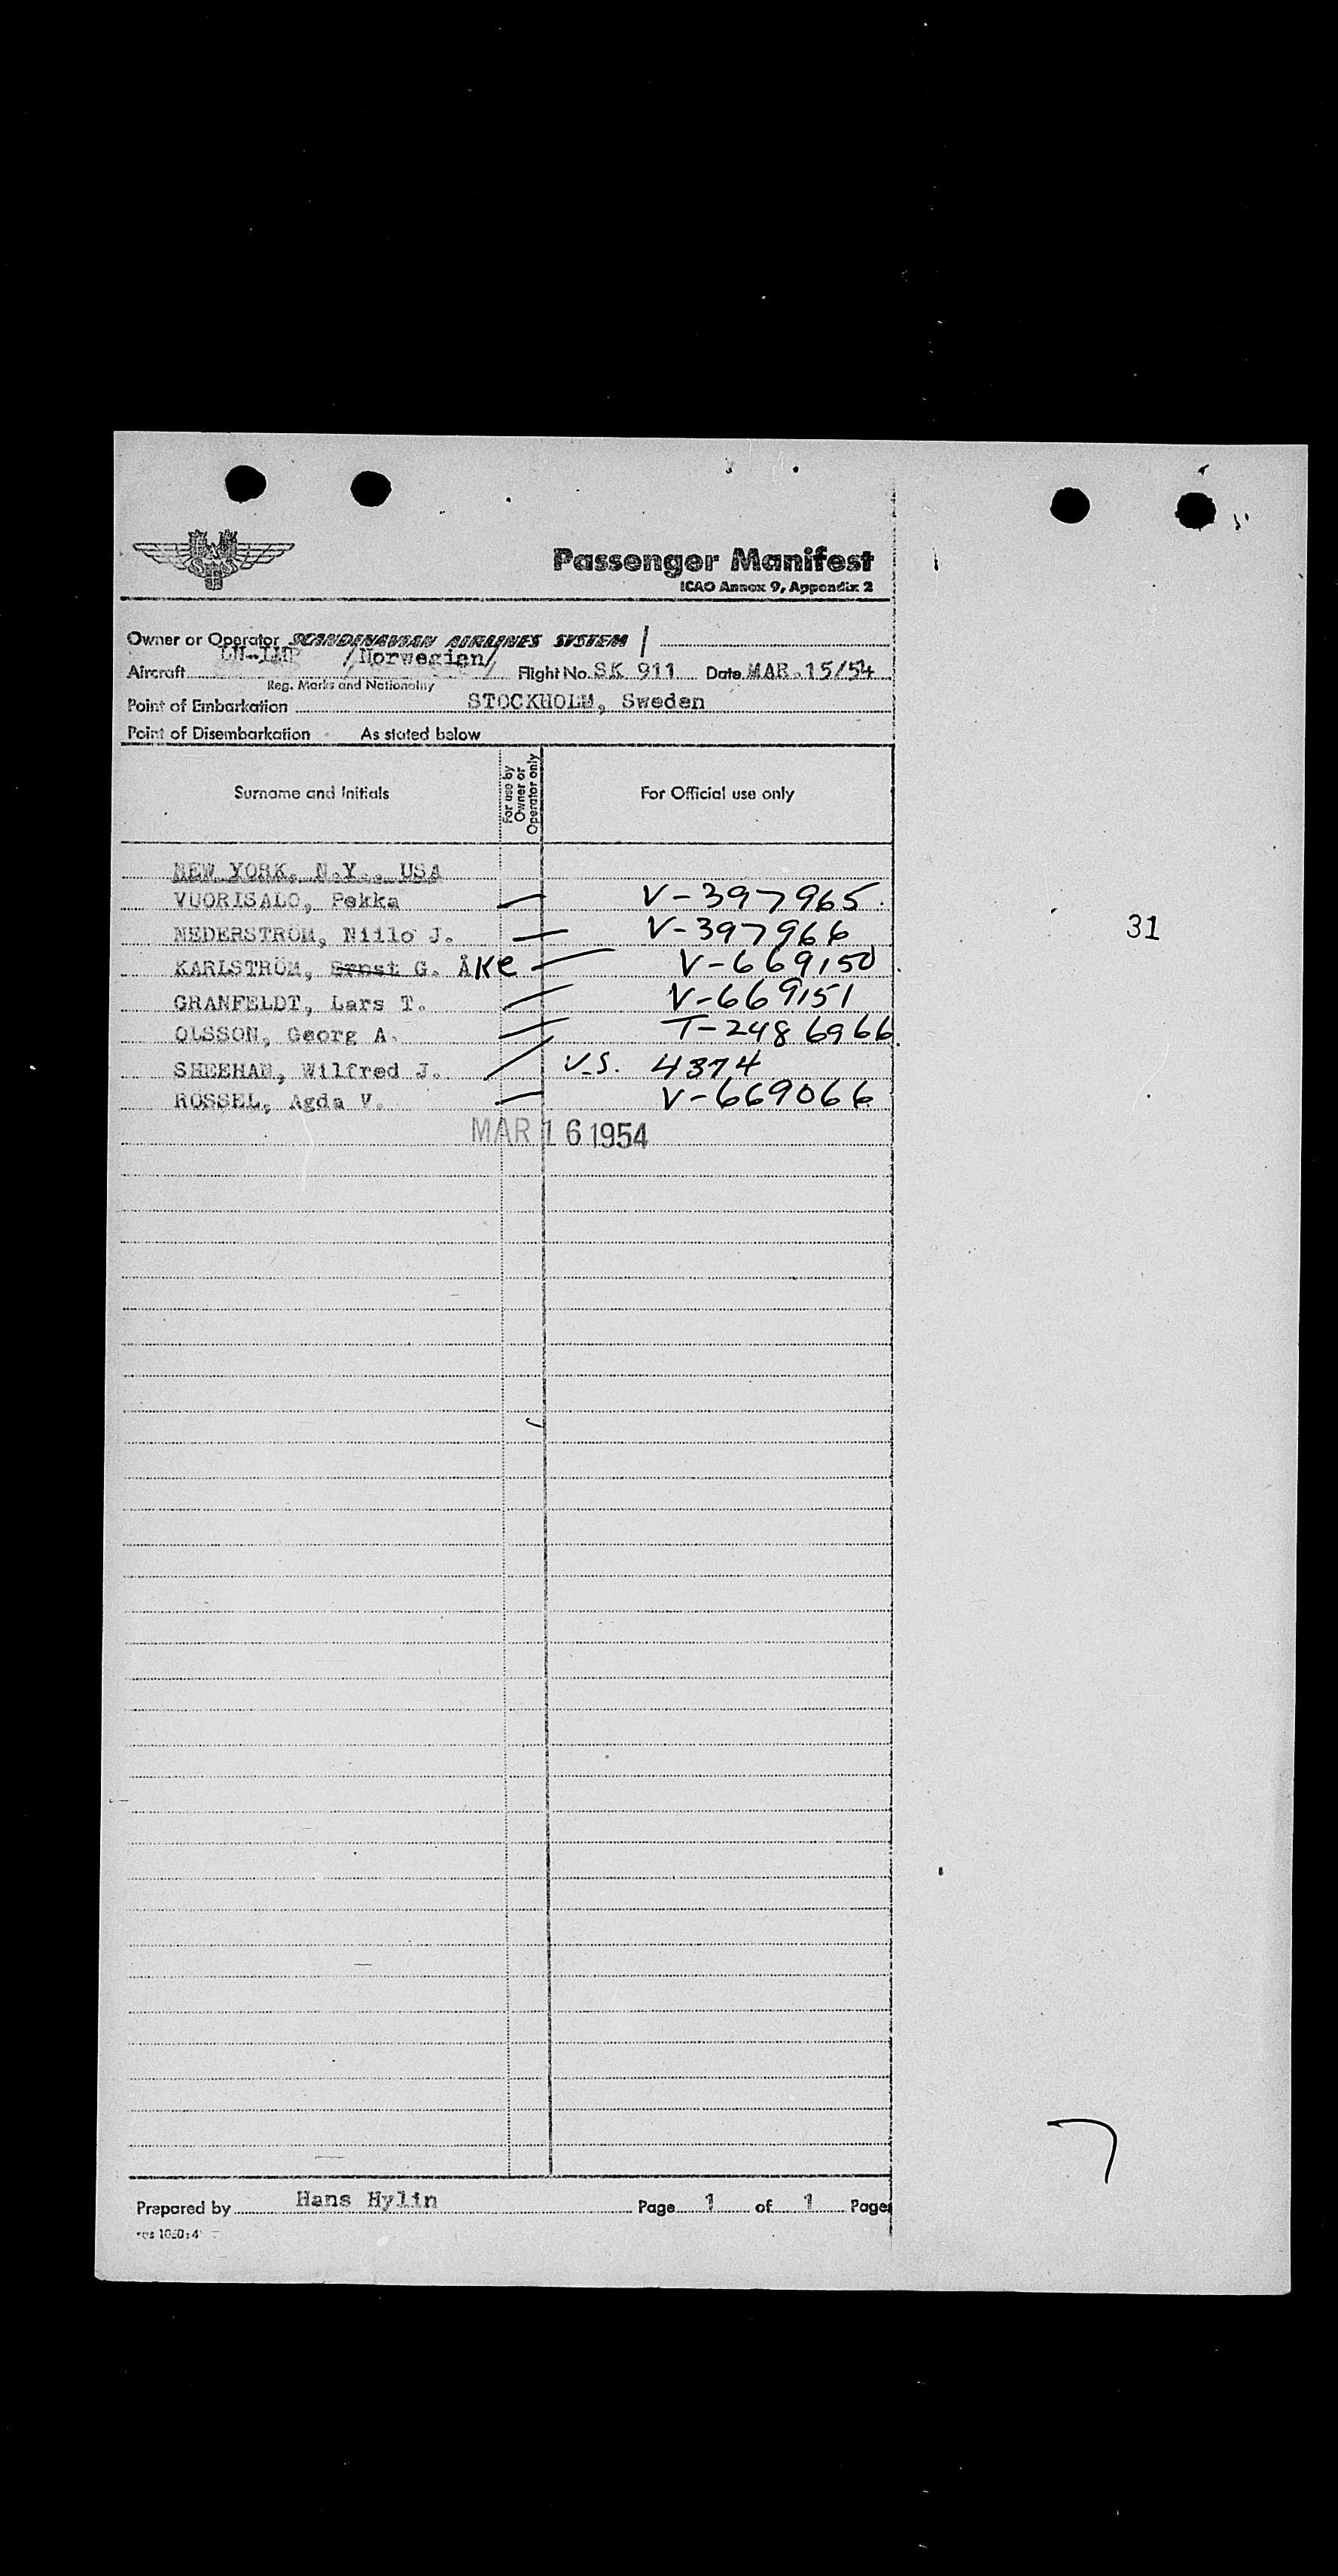 SAS
Passenger Manifest
ICAO Annex 9, Appendix 2
Owner or Operator SCANDINAVIAN AIRLINES SYSTEM /
Aircraft /Norwegian/ Flight No. SK 911 Date MAR.15/54
Reg. Marks and Nationality
Point of Embarkation STOCKHOLM, Sweden
Point of Disembarkation As stated below
Surname and Initials For use by Owner or Operator only For Official use only
NEW YORK, N.Y., USA
VUORISALO, Pekka V-397965
NEDERSTRÖM, Niilo J. V-397966
31
KARLSTRÖM, Ernst G. ÅKe V-669150
GRANFELDT, Lars T. V-669151
OLSSON, Georg A. T-2486966
SHEEHAN, Wilfred J. V.S. 4374
ROSSEL, Agda V. V-669066
MAR 16 1954
7
Prepared by Hans Hylin Page 1 of 1 Pages